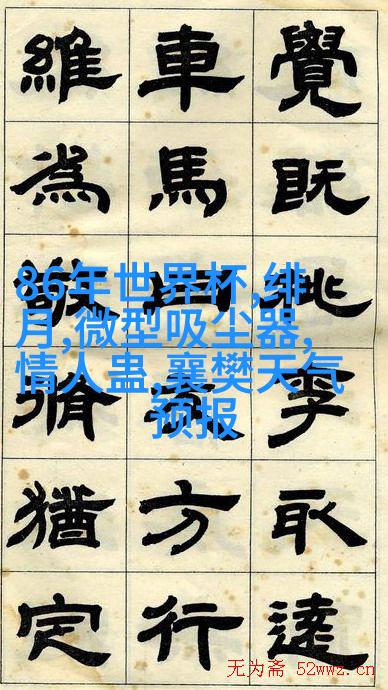 覺既李取達
車馬方行
維為敬脩猶定
86年世界杯,绯
月,微型吸尘器,
情人蛊,襄樊天气
预报
无为斋 52wwz.cn